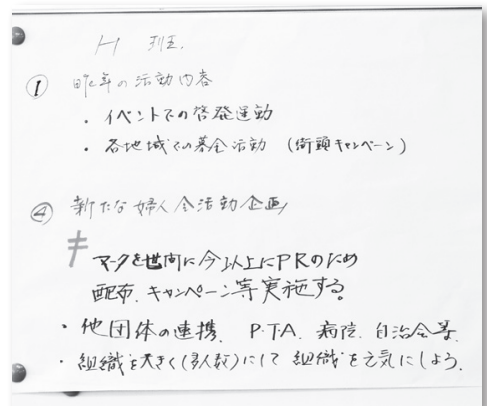 H 班.
① 昨年の活動内容
・イベントでの啓発運動
・各地域での募金活動 (街頭キャンペーン)
④ 新たな婦人会活動企画
マークを世間に今以上にPRのため
配布、キャンペーン等実施する。
・他団体の連携、P.T.A. 病院、自治会等
・組織を大きく(多人数)にして組織を元気にしよう.